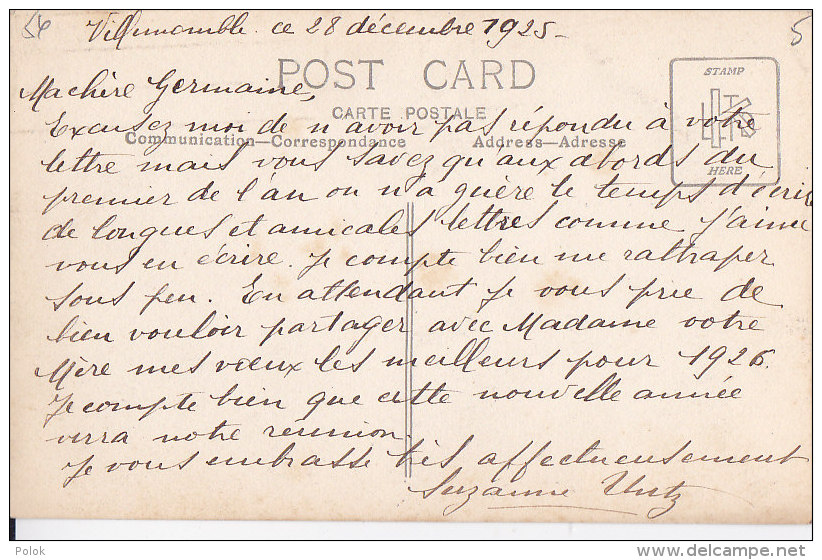 56
Villemomble ce 28 décembre 1925-
5
POST CARD
STAMP
Ma chère Germaine,
CARTE POSTALE
Excusez moi de n'avoir pas répondu à votre
Communication—Correspondance
Address—Adresse
lettre mais vous savez qu'aux abords du
HERE
premier de l'an on n'a guère le temps d'écrire
de longues et amicales lettres comme j'aime
vous en écrire. Je compte bien me rattraper
sous peu. En attendant je vous prie de
bien vouloir partager avec Madame votre
Mère mes vœux les meilleurs pour 1926.
Je compte bien que cette nouvelle année
verra notre réunion.
Je vous embrasse très affectueusement
Suzanne
Polok
www.delcampe.net